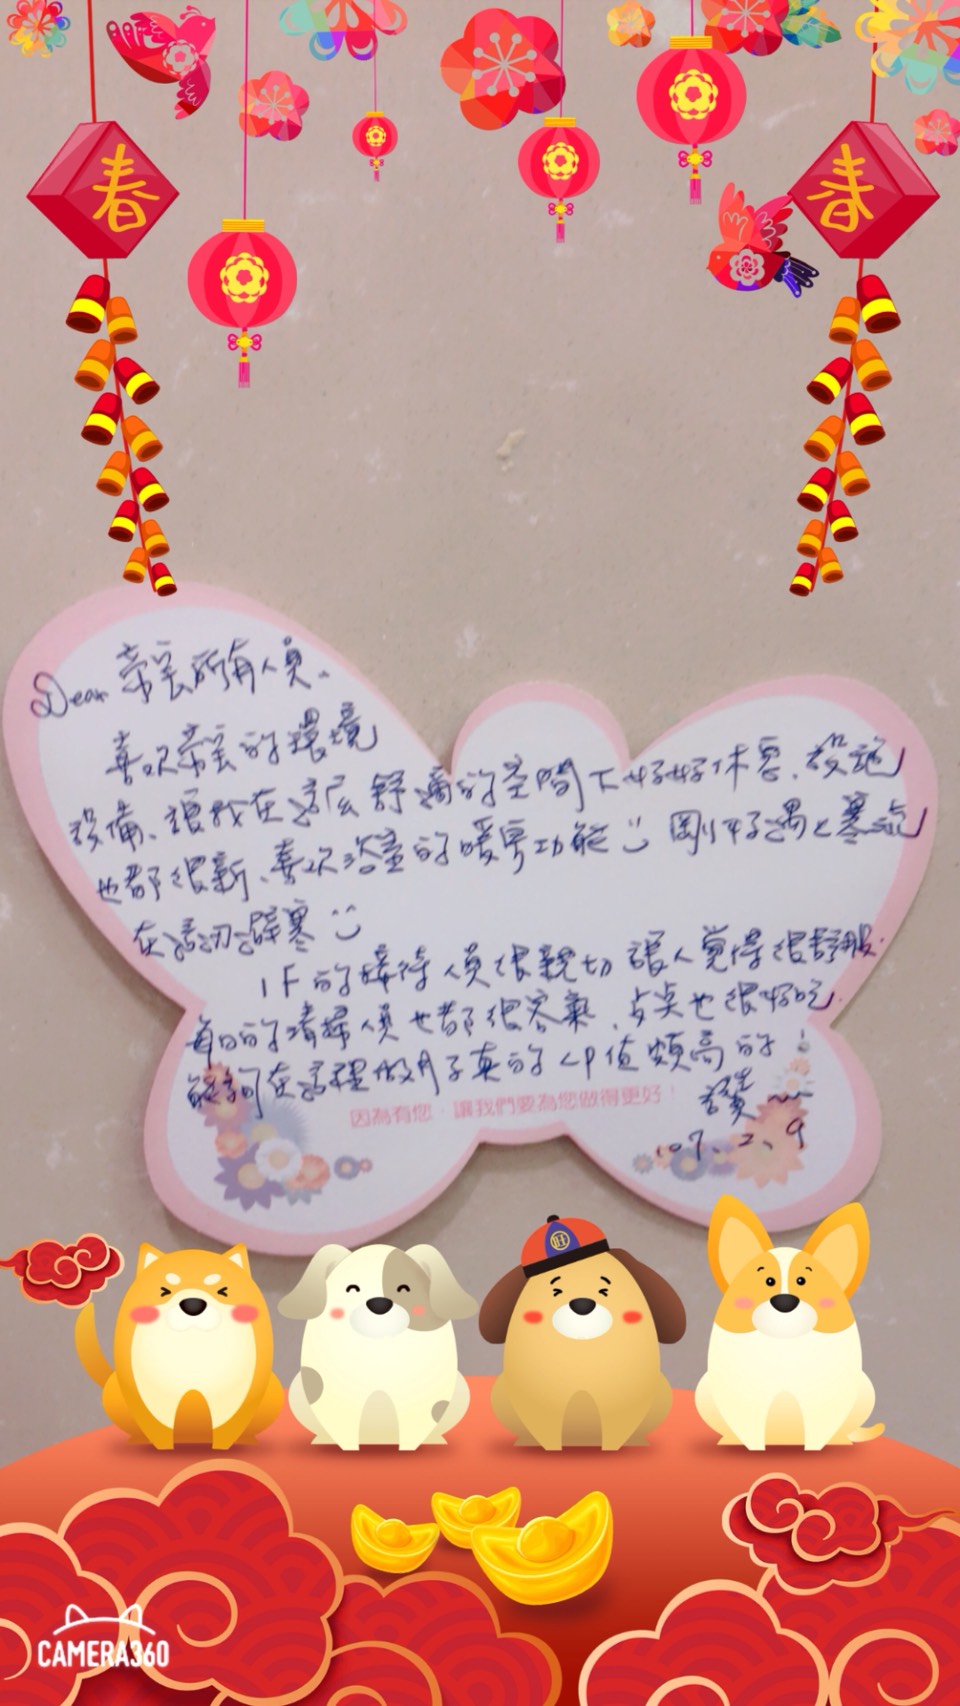 春
春
Dear 榮芸所有人員、
喜欢榮芸的環境
設備、讓我在這麼舒適的空間下好好休息、設施
也都很新、喜欢浴室的暖房功能 剛好遇上寒流
在這切避寒
1F的接待人員很親切 讓人覺得很舒服.
每日的清掃人員也都很客氣、点桌也很好吃
能夠在這裡做月子真的 CP值頗高的!
讚~~
107.2.9
因為有您，讓我們要為您做得更好！
CAMERA360